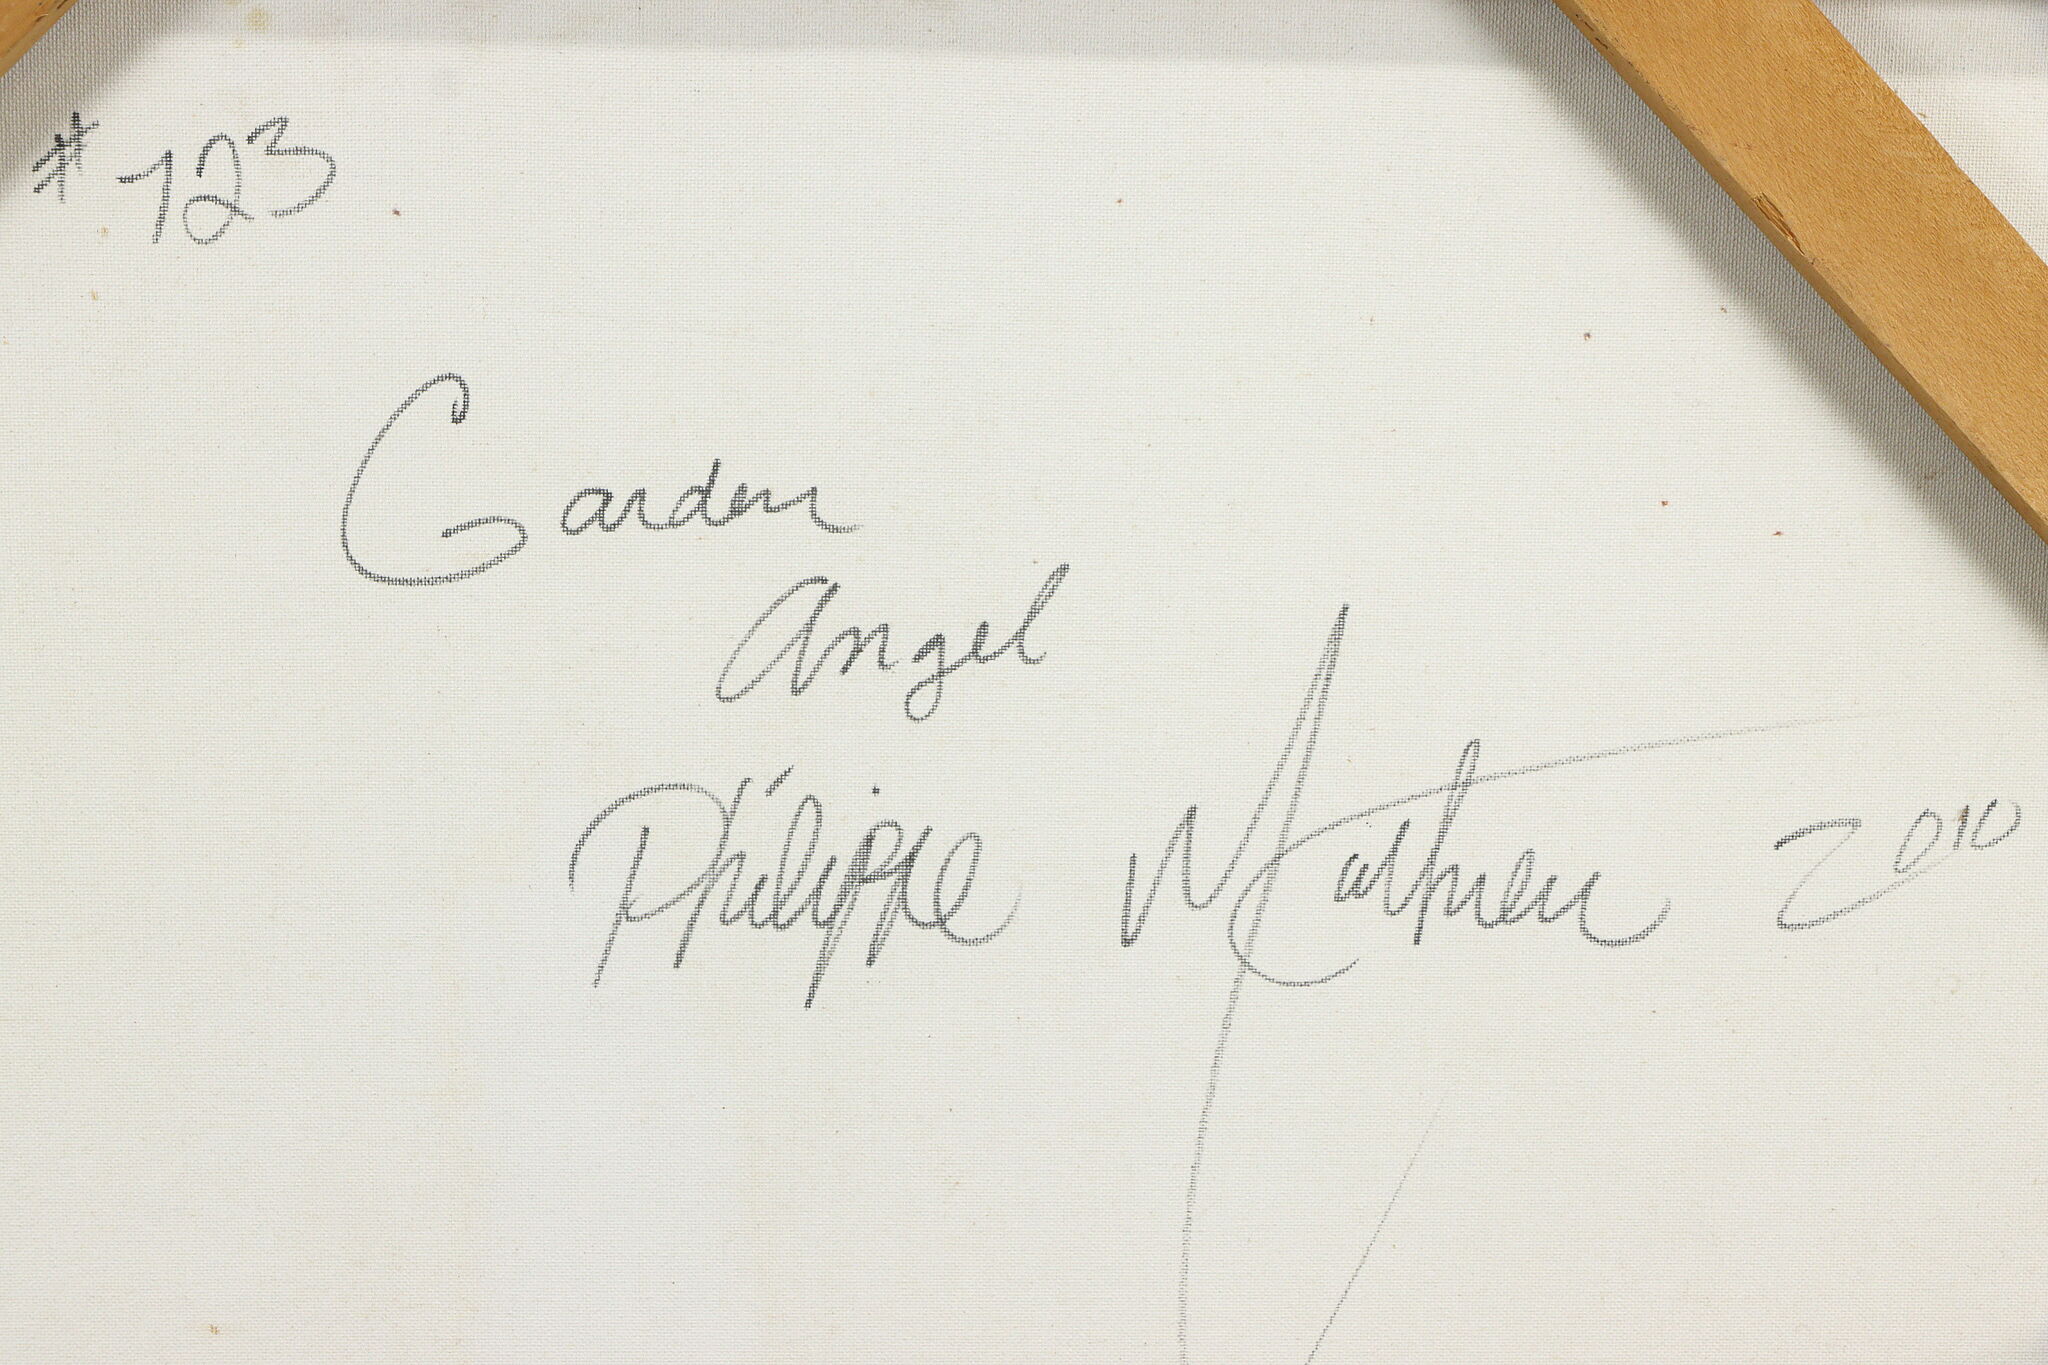 # 123
Garden
Angel
Philippe Mathieu 2010